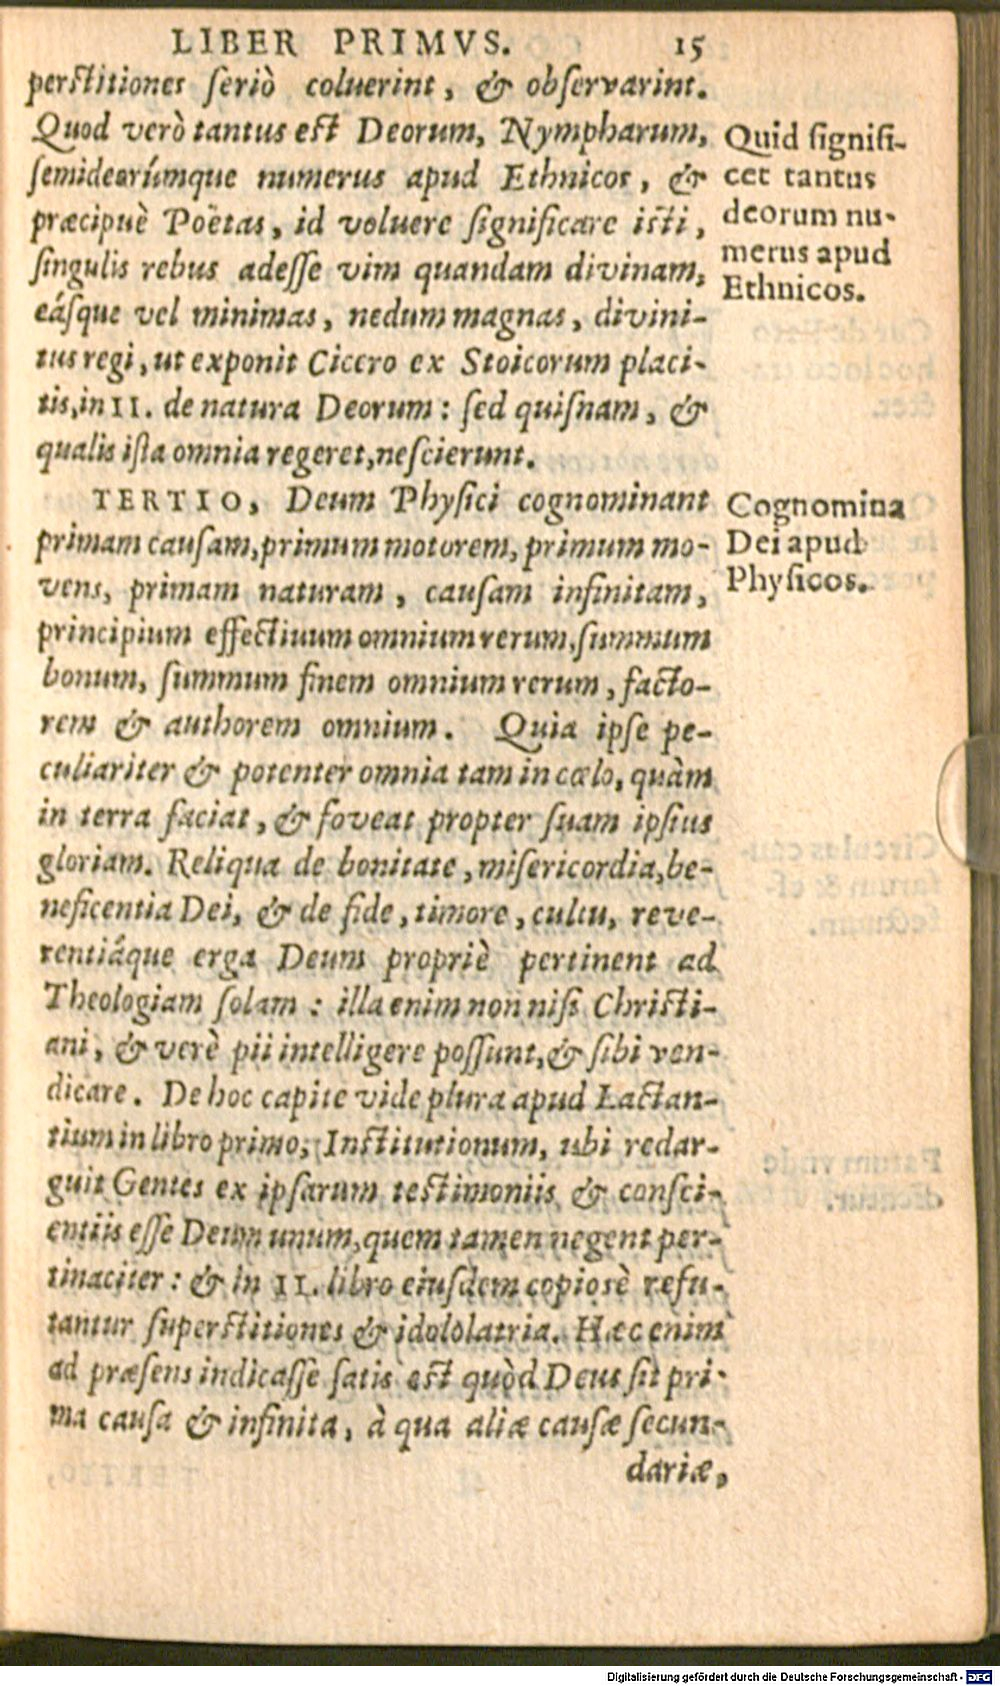 LIBER PRIMVS. 15
perstitiones seriò coluerint, & observarint.
Quod verò tantus est Deorum, Nympharum,
semideorúmque numerus apud Ethnicos, &
præcipuè Poëtas, id voluere significare isti,
singulis rebus adesse vim quandam divinam,
eásque vel minimas, nedum magnas, divini-
tus regi, ut exponit Cicero ex Stoicorum placi-
tis, in II. de natura Deorum: sed quisnam, &
qualis ista omnia regeret, nescierunt.
Quid signifi-
cet tantus
deorum nu-
merus apud
Ethnicos.
TERTIO, Deum Physici cognominant
primam causam, primum motorem, primum mo-
vens, primam naturam, causam infinitam,
principium effectiuum omnium rerum, summum
bonum, summum finem omnium rerum, facto-
rem & authorem omnium. Quia ipse pe-
culiariter & potenter omnia tam in cœlo, quàm
in terra faciat, & foveat propter suam ipsius
gloriam. Reliqua de bonitate, misericordia, be-
neficentia Dei, & de fide, timore, cultu, reve-
rentiáque erga Deum propriè pertinent ad
Theologiam solam: illa enim non nisi Christi-
ani, & verè pii intelligere possunt, & sibi ven-
dicare. De hoc capite vide plura apud Lactan-
tium in libro primo, Institutionum, ubi redar-
guit Gentes ex ipsarum testimoniis & consci-
entiis esse Deum unum, quem tamen negent per-
tinaciter: & in II. libro eiusdem copiosè refu-
tantur superstitiones & idololatria. Hæc enim
ad præsens indicasse satis est quòd Deus sit pri-
ma causa & infinita, à qua aliæ causæ secun-
dariæ,
Cognomina
Dei apud
Physicos.
Digitalisierung gefördert durch die Deutsche Forschungsgemeinschaft - DFG